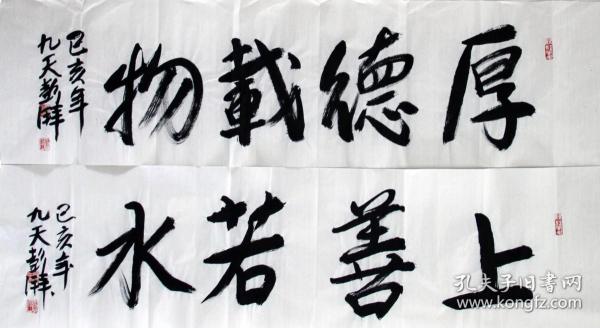 厚德載物
己亥年
九天彭湃
上善若水
己亥年
九天彭湃
孔夫子旧书网
www.kongfz.com